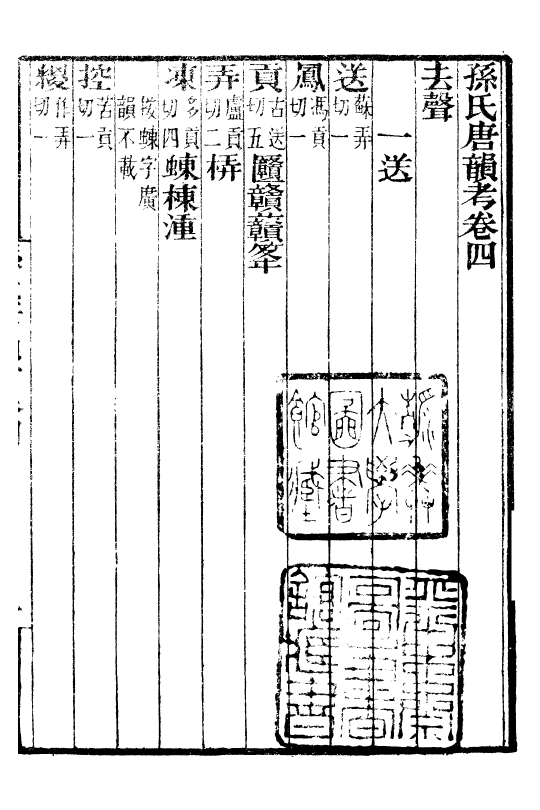 孫氏唐韻考卷四
去聲
一送
送蘇弄切一
鳳馮貢切一
貢古送切五贛
弄盧貢切二梇
凍多貢切四蝀棟湩
按蝀字廣韻不載
控苦貢切一
糉作弄切一
大學
圖書
館藏